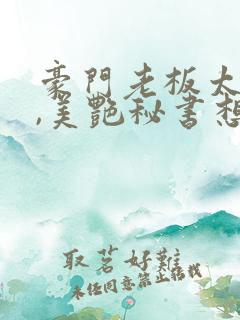 豪門老板太
,美艷秘書想
取茗好難
未任同意禁止轉載